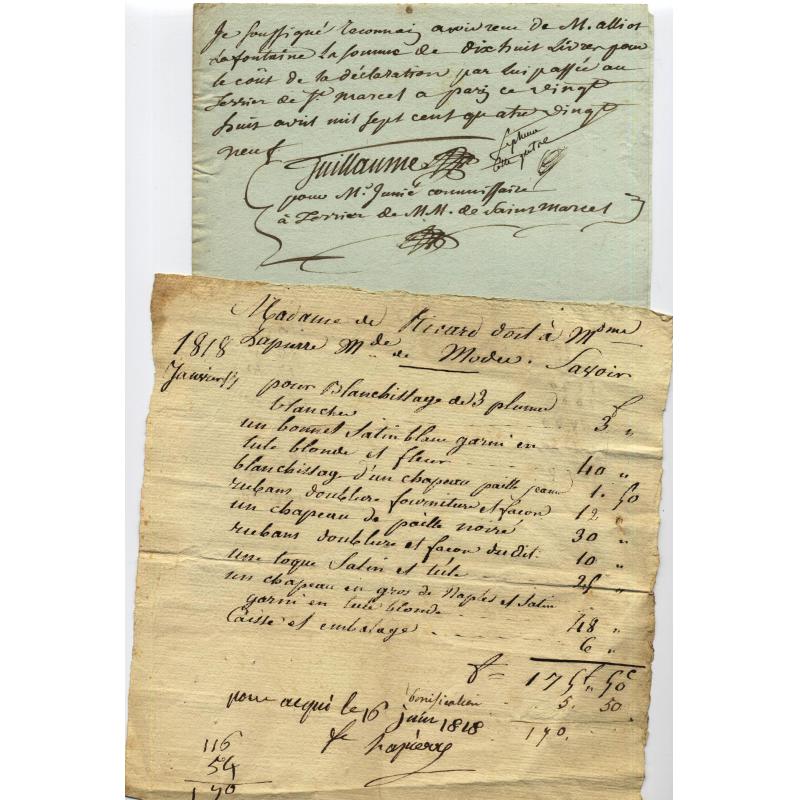 Je soussigné reconnais avoir reçu de M. alliot
Lafontaine La somme de dix huit Livres pour
le coût de la déclaration par lui passée au
Terrier de St. marcel a paris ce vingt
huit avril mil sept cent quatre vingt
neuf
Guillaume
pour Mr. Junié commissaire
à Terrier de M.M. de Saint Marcel
Madame de Ricard doit à Mdme
1818 Lapierre Mde de Modes. Savoir
Janvier
pour Blanchissage de 3 plume
blanches 3 "
un bonnet Satin blanc garni en
tule blonde et fleur 40 "
blanchissag d'un chapeau paille jaune 1. 50
rubans doublure fourniture et façon 12 "
un chapeau de paille noire 30 "
rubans doublure et façon du dit. 10 "
une toque Satin et tule 25 "
un chapeau en gros de Naples et Satin
garni en tule blonde 48 "
Caisse et embalage 6 "
175f " 50c
bonification 5. 50
pour acqui le 16 juin 1818 170.
fe Lapierre
116
54
170